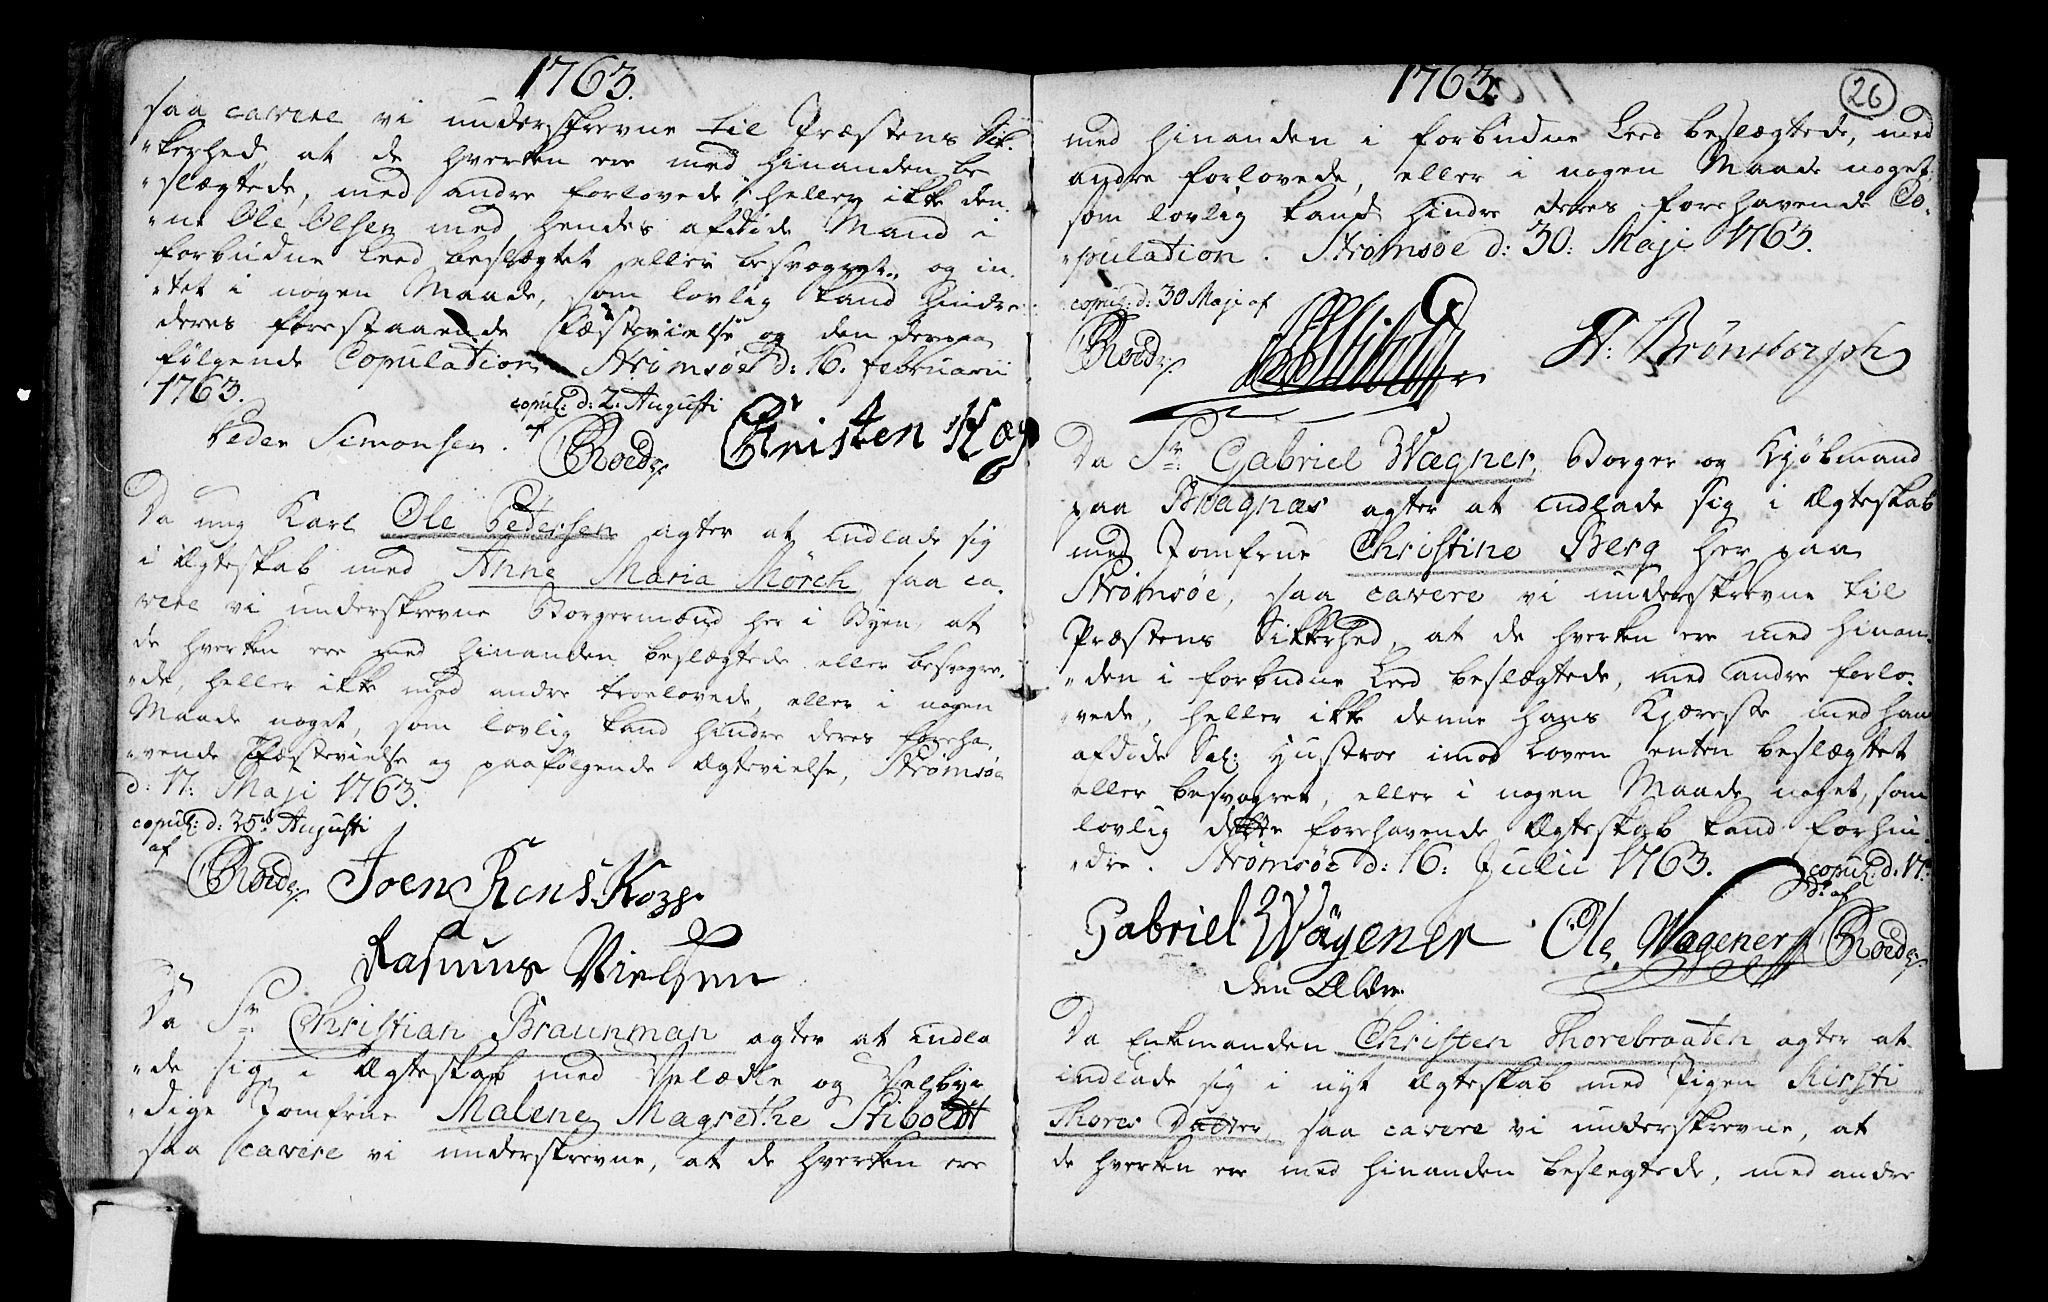 1763.
saa cavere vi underskrevne til Præstens Sik¬
"kerhed, at de hverken ere med hinanden be
"slægtede, med andre forlovede, heller ikke den¬
"ne Ole Olsen med hendes afdøde Mand i
forbudne Leed beslægtet eller besvogret, og in¬
"tet i nogen Maade, som lovlig kand hindre
deres forestaaende Fæstevielse og den derpaa
følgende Copulation. Strømsøe d: 16. Februarii
1763.
copul: d: 2. Augusti
af
Peder Simonsen.
CRoed
Christen Høy
Da ung Karl Ole Pedersen agter at indlade sig
i Ægteskab med Anne Maria Mörch, saa ca¬
vere vi underskrevne Borgermænd her i Byen, at
de hverken ere med hinanden beslægtede eller besvogre¬
"de, heller ikke med andre troelovede, eller i nogen
Maade noget, som lovlig kand hindre deres foreha¬
"vende Fæstevielse og paafølgende Ægtevielse, Strømsøe
d: 17: Maji 1763.
copul: d: 25de Augusti
af
CRoed
Joen Rens Kopp
Rasmus Nielsen
Da Sr. Christian Braunman agter at indla
"de sig i Ægteskab med Velædle og Velbyr
"dige Jomfrue Malene Magrethe Stiboldt
saa cavere vi underskrevne, at de hverken ere
1763.
26
med hinanden i forbudne Leed beslægtede, med
andre forlovede, eller i nogen Maade noget,
som lovlig kand hindre deres forehavende Co¬
"pulation. Strømsøe d: 30: Maji 1763.
copul: d: 30 Maji af
CRoed
Stiboldt
H: Brönstorph
Da Sr. Gabriel Wægner, Borger og Kjøbmand
paa Bragnæs agter at indlade sig i Ægteskab
med Jomfrue Christine Berg her paa
Strømsøe, saa cavere vi underskrevne til
Præstens Sikkerhed, at de hverken ere med hinan¬
"den i forbudne Leed beslægtede, med andre forlo¬
"vede, heller ikke denne hans Kjæreste med han
afdøde Sal: Hustroe imod Loven enten beslægtet
eller besvogret, eller i nogen Maade noget, som
lovlig dette forehavende Ægteskab kand forhin
"dre. Strømsøe d: 16: Julii 1763.
copul: d: 17.
Ds. af
Gabriel Wägener
Ole Wægener
CRoed
den Ældre
Da Enkemanden Christen Thorebraaten agter at
indlade sig i nyt Ægteskab med Pigen Kirsti
Thores Datter, saa cavere vi underskrevne, at
de hverken ere med hinanden beslegtede, med andre